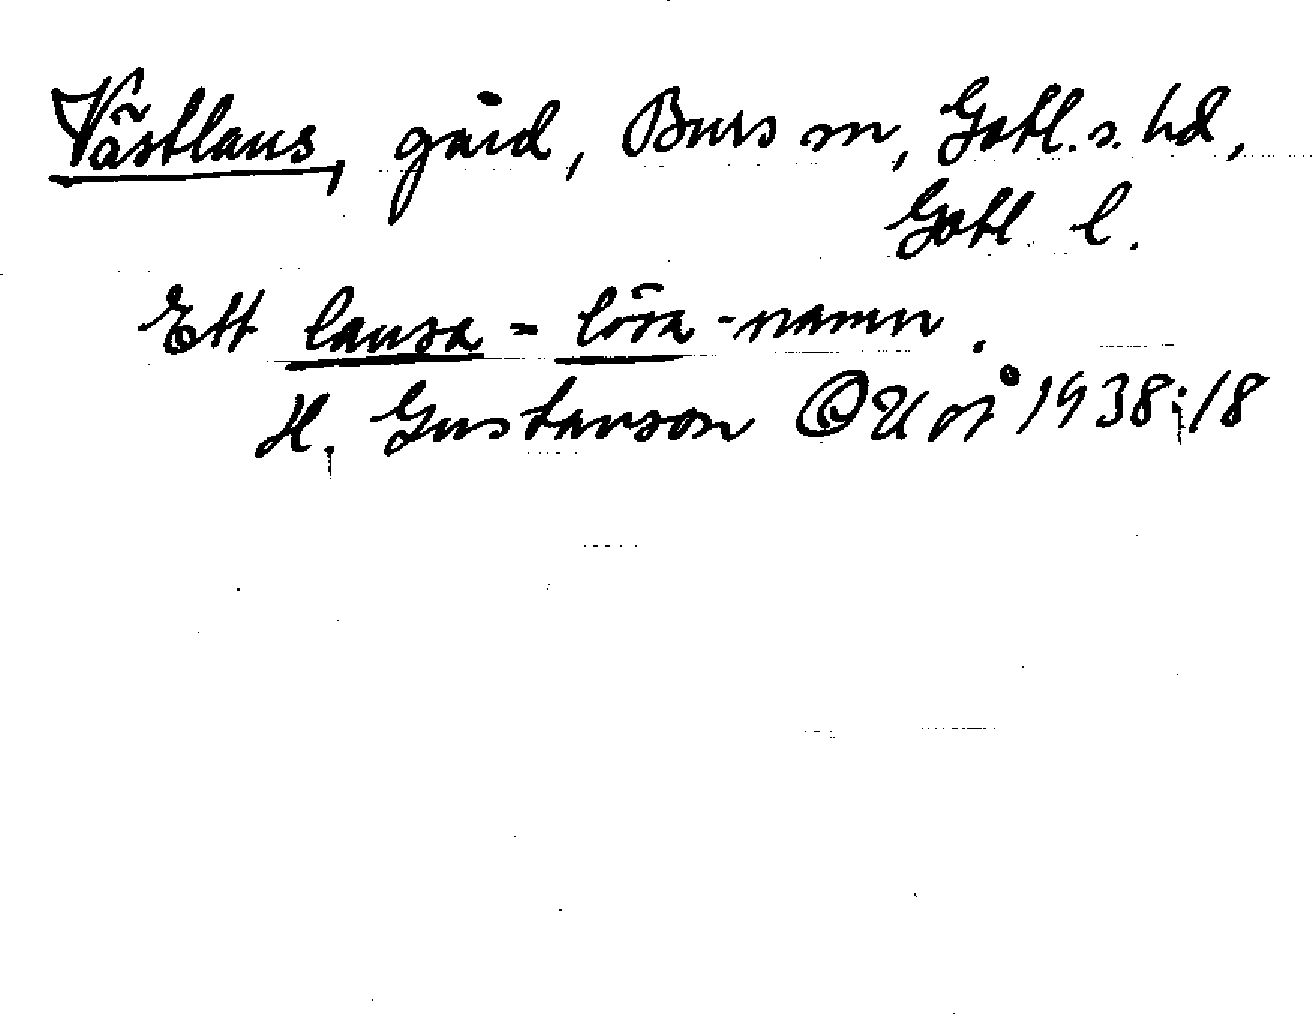 Västlaus, gård, Burs sn, Gotl. s. hd,
Gotl l.
Ett lausa - lösa - namn.
H. Gustavson OUoÅ 1938:18